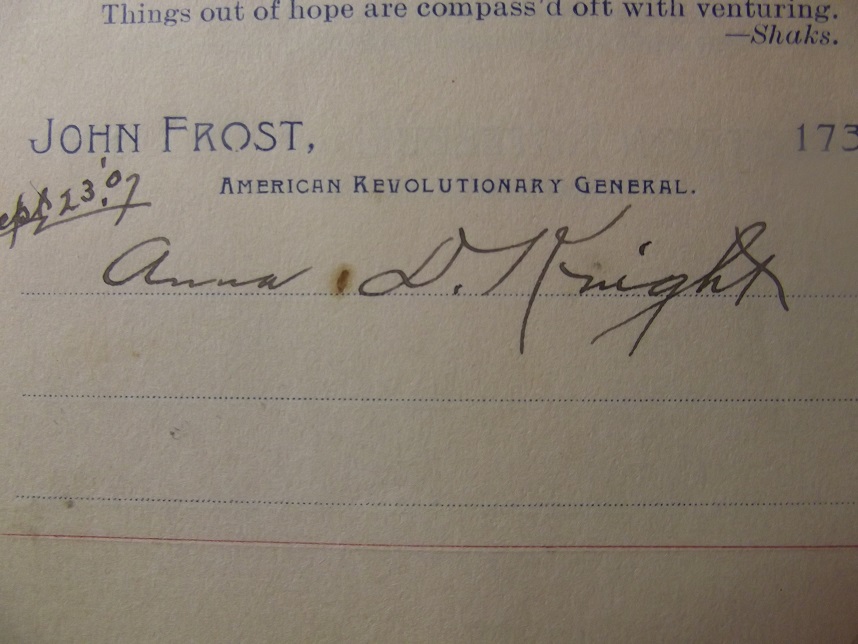 Things out of hope are compass'd oft with venturing.
—Shaks.
JOHN FROST, 173
AMERICAN REVOLUTIONARY GENERAL.
ept 23. '07
Anna D. Knight